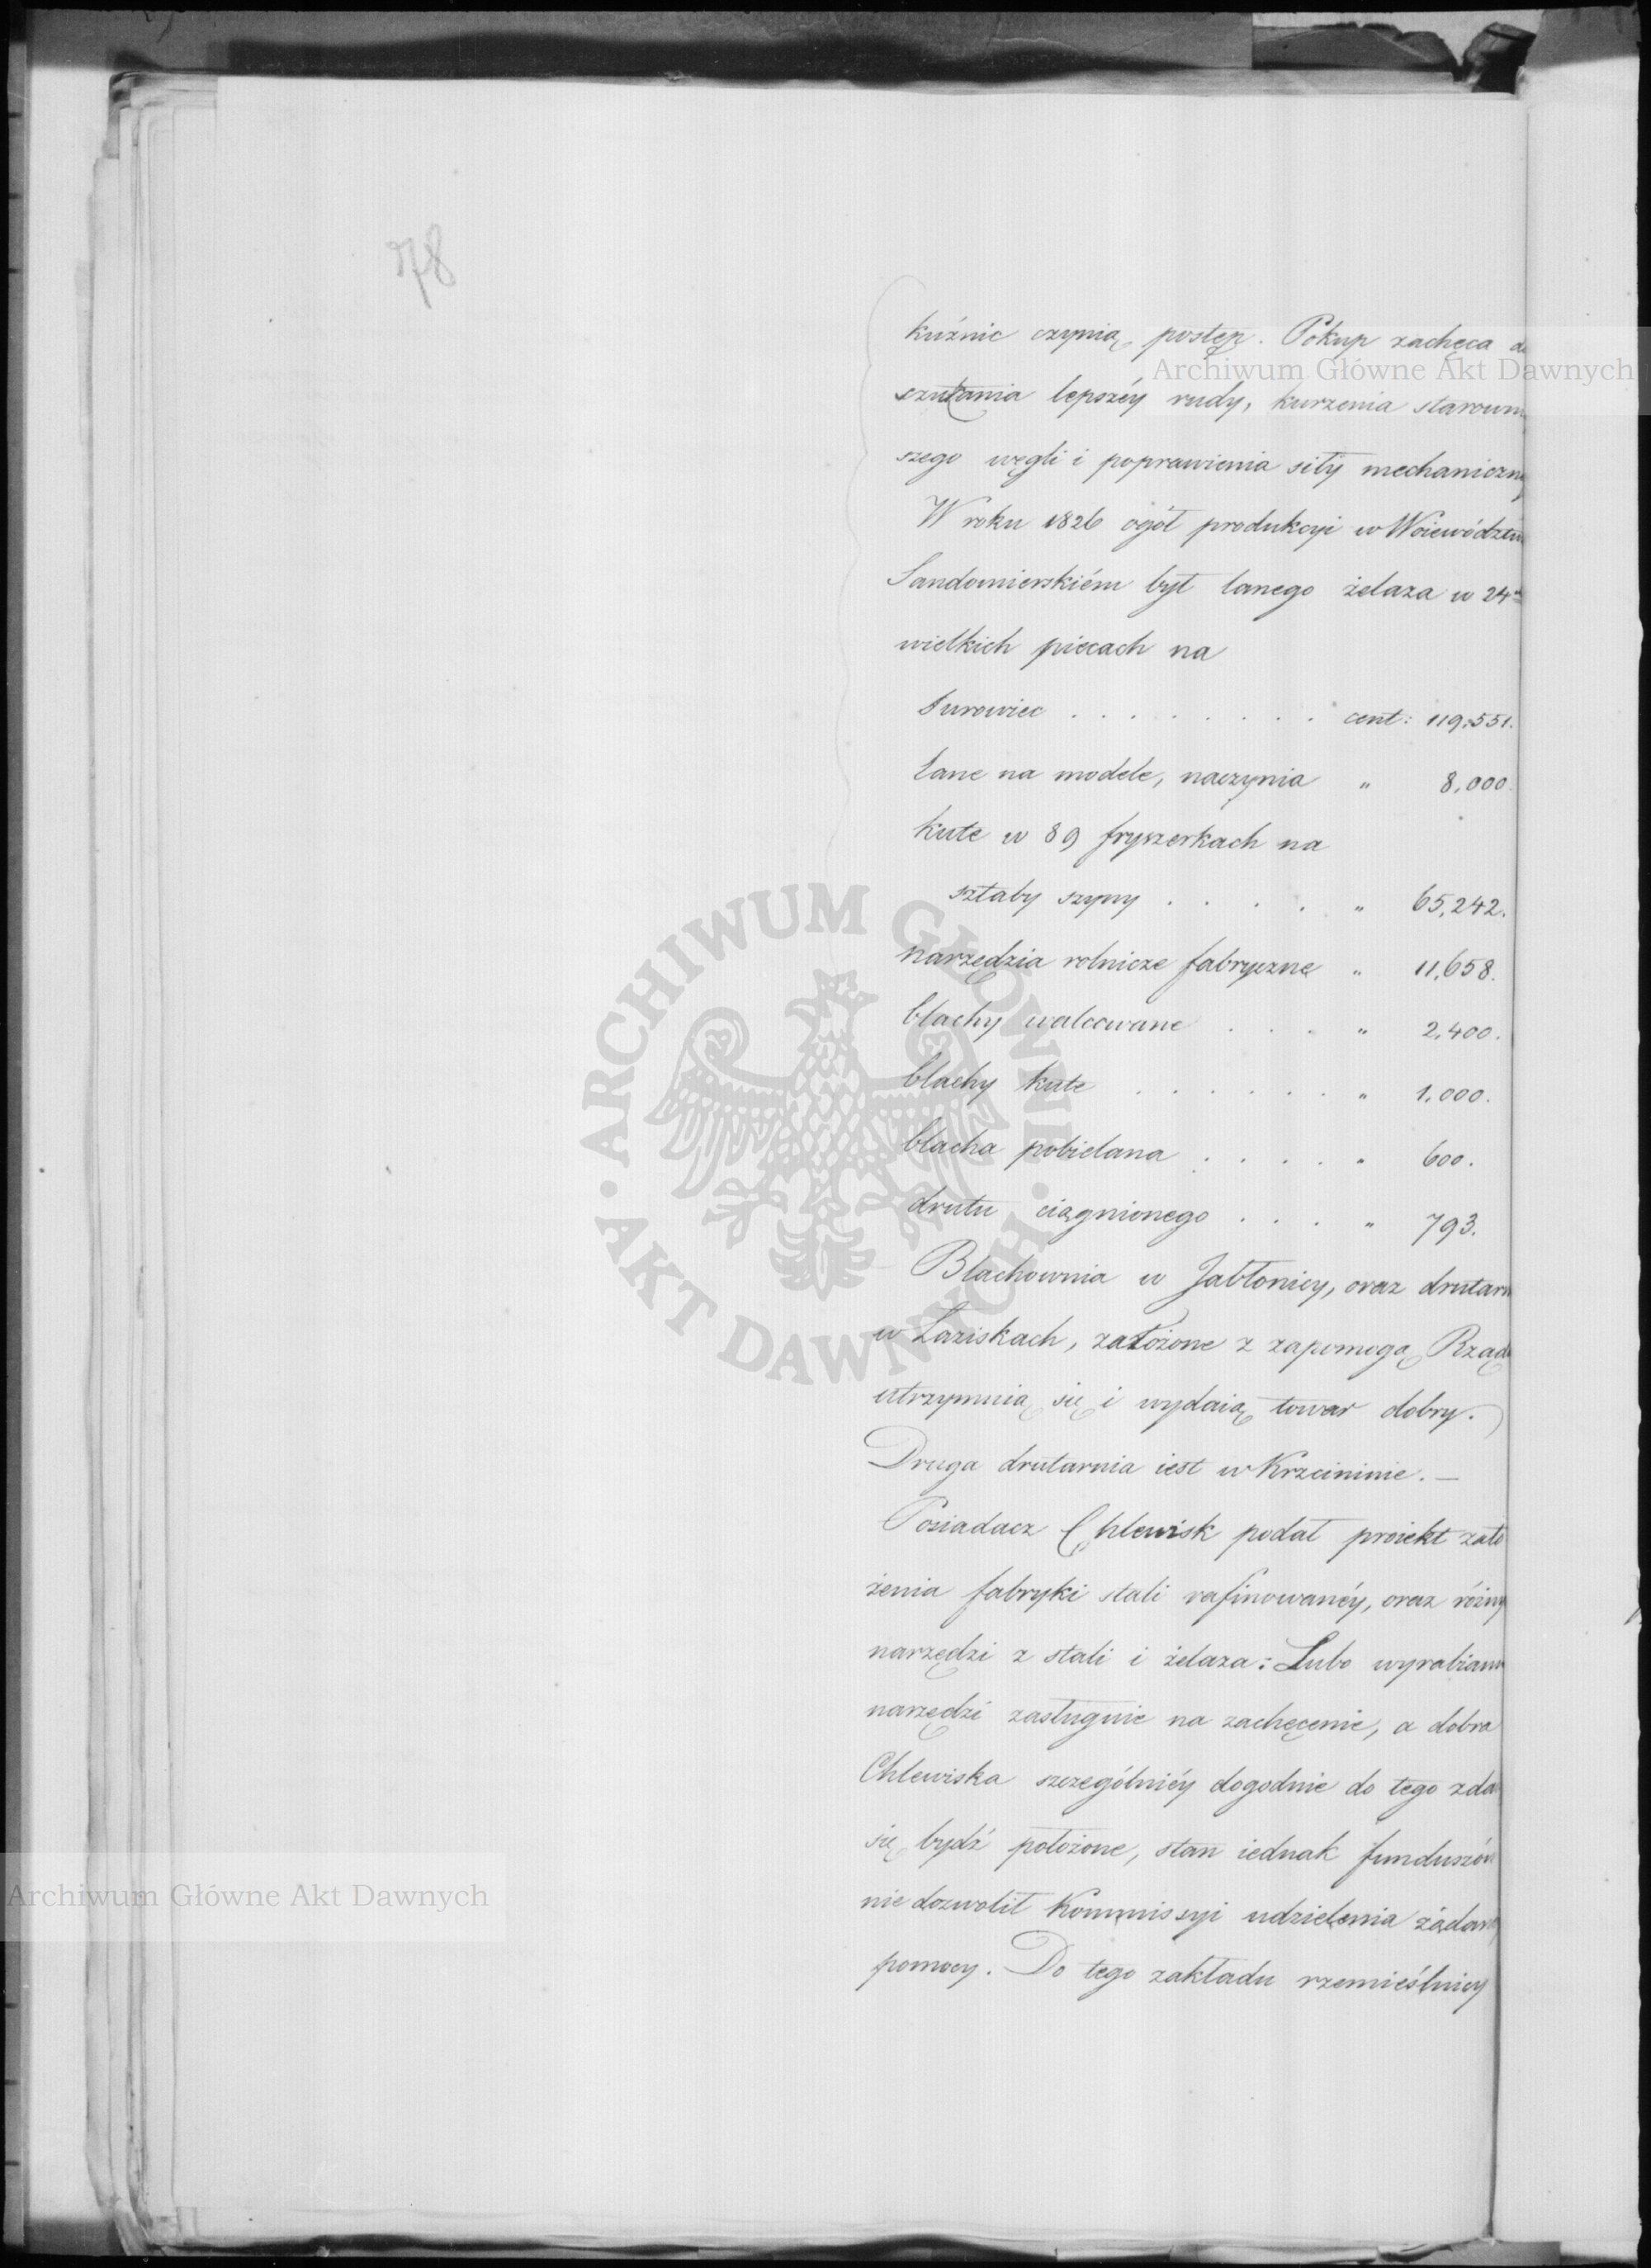 78
kuźnic czynią postęp. Pokup zachęca do
szukania lepszéy rudy, kurzenia starown
szego węgli i poprawienia siły mechaniczn
W roku 1826 ogół produkcyi w Woiewództw
Sandomierskiém był lanego żelaza w 24
wielkich piecach na
Surowiec . . . . . . . . cent: 119.551.
lane na modele, naczynia " 8,000.
kute w 89 fryszerkach na
sztaby szyny . . . . " 65,242.
narzędzia rolnicze fabryczne " 11,658.
blachy walcowane . . . " 2,400.
blachy kute . . . . . . " 1,000.
blacha pobielana . . . . " 600.
drutu ciągnionego . . . " 793.
Blachownia w Jabłonicy, oraz drutarn
w Łaziskach, założone z zapomogą Rząd
utrzymuią się i wydaią towar dobry.
Druga drutarnia iest w Krzcininie. —
Posiadacz Chlewisk podał proiekt zało
żenia fabryki stali rafinowanéy, oraz różny
narzędzi z stali i żelaza: Lubo wyrabian
narzędzi zasługuie na zachęcenie, a dobra
Chlewiska szczególniéy dogodnie do tego zda
się bydź położone, stan iednak funduszów
nie dozwolił Kommissyi udzielenia żądan
pomocy. Do tego zakładu rzemieślnicy
Archiwum Główne Akt Dawnych
ARCHIWUM GŁÓWNE · AKT DAWNYCH ·
Archiwum Główne Akt Dawnych